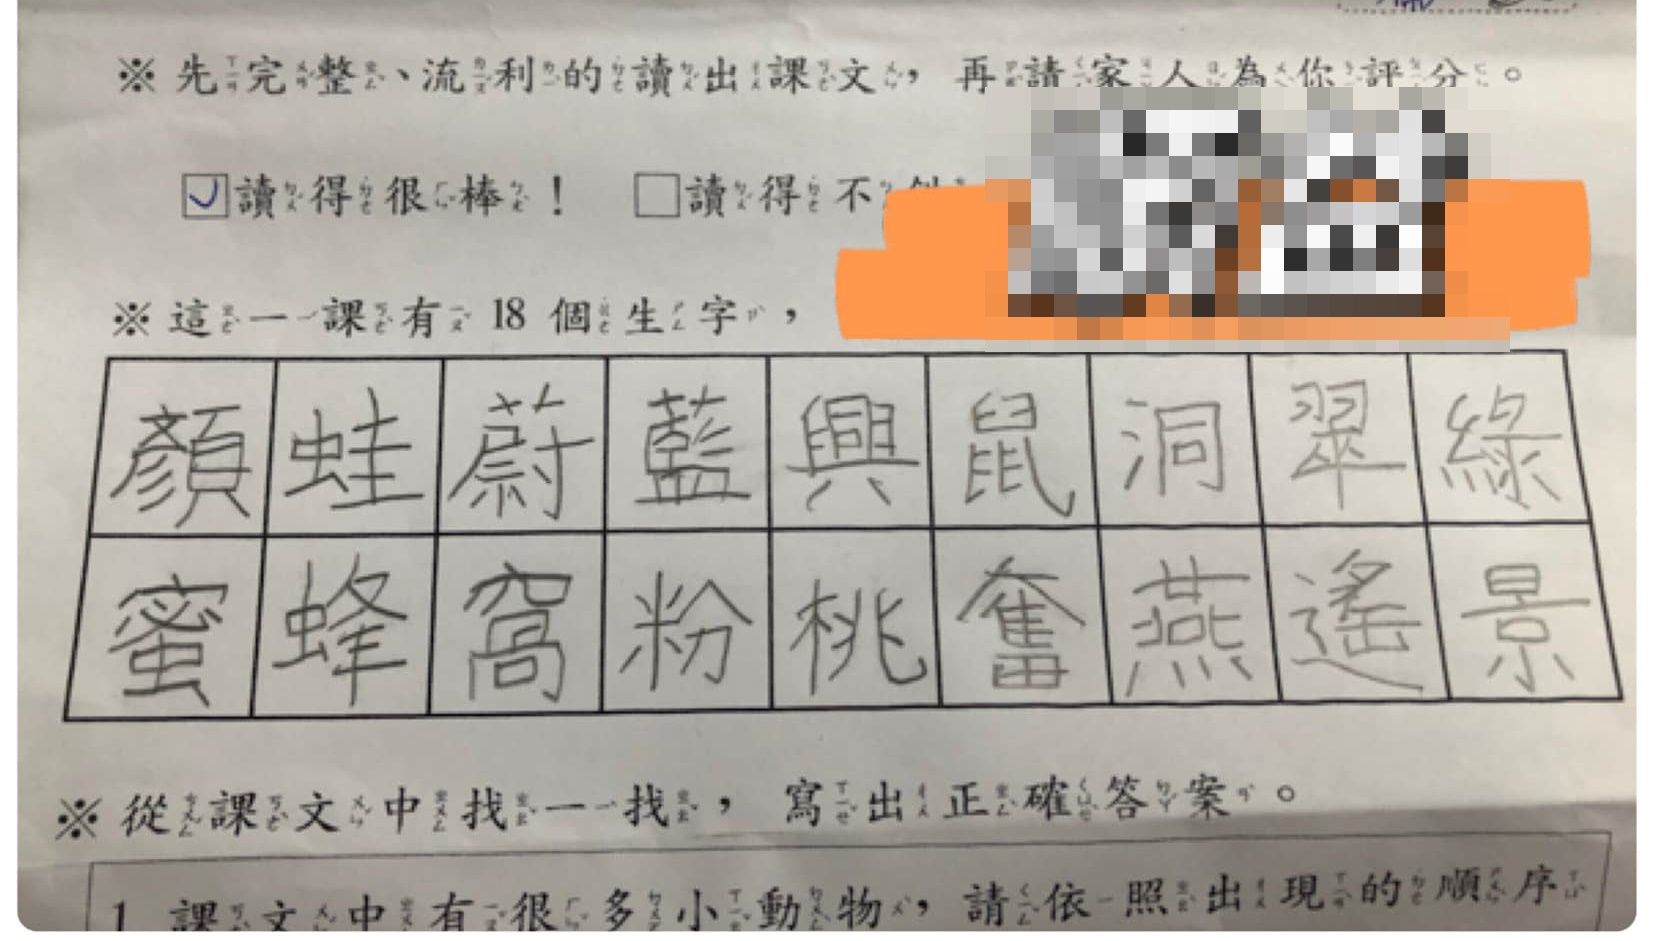 ※先完整、流利的讀出課文，再請家人為你評分。
讀得很棒！ 讀得不
※這一課有 18 個生字，
顏 蛙 蔚 藍 興 鼠 洞 翠 綠
蜜 蜂 窩 粉 桃 奮 燕 遙 景
※從課文中找一找，寫出正確答案。
1. 課文中有很多小動物，請依照出現的順序